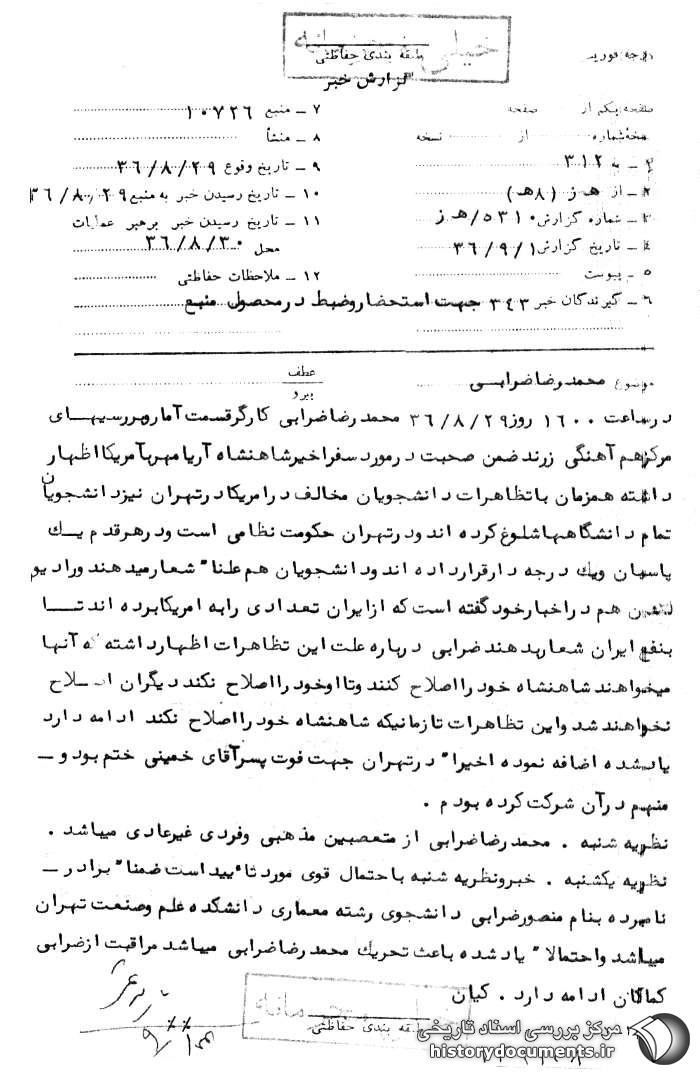 خیلی محرمانه
طبقه بندی حفاظتی
گزارش خبر
درجه فوریت
صفحه یکم از صفحه
نسخه شماره از نسخه
۱ ـ به ۳۱۲
۲ ـ از هـ ز (۸هـ)
۳ ـ شماره گزارش ۵۳۱۰/هـ ز
۴ ـ تاریخ گزارش ۳۶/۹/۱
۵ ـ پیوست
۶ ـ گیرندگان خبر ۳۴۳ جهت استحضار وضبط در محصول منبع
۷ ـ منبع ۱۰۷۲۶
۸ ـ منشأ
۹ ـ تاریخ وقوع ۳۶/۸/۲۹
۱۰ ـ تاریخ رسیدن خبر به منبع ۳۶/۸/۲۹
۱۱ ـ تاریخ رسیدن خبر برهبر عملیات
محل ۳۶/۸/۳۰
۱۲ ـ ملاحظات حفاظتی
موضوع محمد رضا ضرابی
عطف
پیرو
درساعت ۱۶۰۰ روز ۳۶/۸/۲۹ محمد رضا ضرابی کارگر قسمت آمار وبررسیهای
مرکز هم آهنگی زرند ضمن صحبت در مورد سفر اخیر شاهنشاه آریامهر بآمریکا اظهار
داشته همزمان با تظاهرات دانشجویان مخالف در امریکا در تهران نیز دانشجویان
تمام دانشگاهها شلوغ کرده اند ودر تهران حکومت نظامی است ودر هر قدم یك
پاسبان ویك درجه دار قرار داده اند ودانشجویان هم علنا" شعار میدهند ورادیو
لندن هم در اخبار خود گفته است که از ایران تعدادی را به امریکا برده اند تا
بنفع ایران شعار بدهند ضرابی درباره علت این تظاهرات اظهار داشته که آنها
میخواهند شاهنشاه خود را اصلاح کنند وتا او خود را اصلاح نکند دیگران اصلاح
نخواهند شد واین تظاهرات تا زمانیکه شاهنشاه خود را اصلاح نکند ادامه دارد
یاد شده اضافه نموده اخیرا" در تهران جهت فوت پسر آقای خمینی ختم بود و ـ
منهم در آن شرکت کرده بودم .
نظریه شنبه . محمد رضا ضرابی از متعصبین مذهبی وفردی غیر عادی میباشد .
نظریه یکشنبه . خبر ونظریه شنبه با احتمال قوی مورد تائید است ضمنا" برادر ـ
نامبرده بنام منصور ضرابی دانشجوی رشته معماری دانشکده علم وصنعت تهران
میباشد واحتمالا" یاد شده باعث تحریك محمد رضا ضرابی میباشد مراقبت از ضرابی
کماکان ادامه دارد . کیان
طبقه بندی حفاظتی
مرکز بررسی اسناد تاریخی
historydocuments.ir